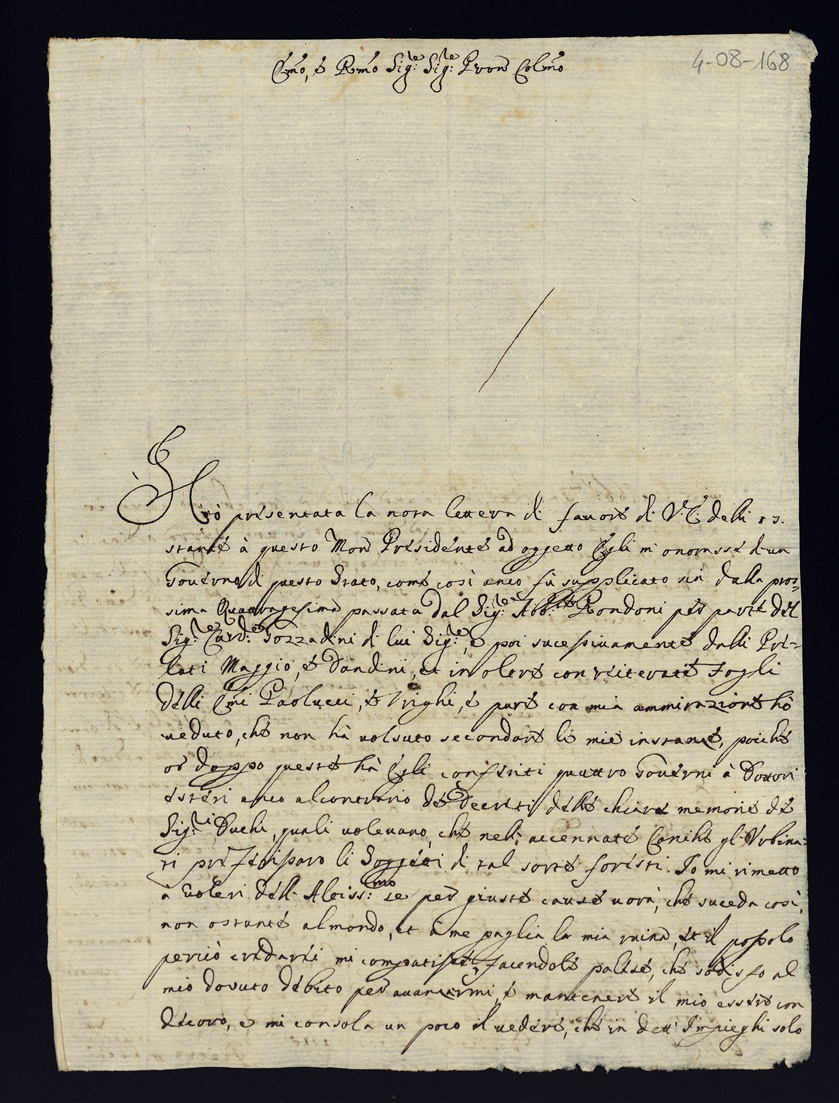 Emo, è Rmo Sig:re Sig:re Pron Colmo
4-08-168
Hò presentata la nova lettera di favore di V: E: delli 13.
stante à questo Mons Presidente ad oggetto Egli mi onorasse d'un
Governo di questo Stato, come così anco fù supplicato sin dalla pros-
sima Quadragesima passata dal Sig:re Abb:te Rondoni per parte del
Sig:re Card:le Gozzadini di lui Sig:re, e poi sucessivamente dalli Pre-
lati Maggio, è Dandini, et in oltre con reiterate Fogli
delli Emi Paolucci, è Orighi, è pure con mia ammirazione hò
veduto, che non hà volsuto secondare le mie instanze, poiche
or doppo queste hà Egli conferiti quattro Governi à Dottori
esteri anco al contrario de Decreti delle chiare memorie de
Sig:ri Duchi, quali volevano, che nelle accennate Cariche gl'Urbina-
ti preferissero li Soggetti di tal sorte foresti. Io mi rimetto
a voleri dell'Altiss:mo se per giuste cause vorà, che suceda così,
non ostante al mondo, et a me paglia la mia ruina, et il popolo
perciò mi compatisce, facendole palese, che sodisfo al
mio dovuto debito per avanzarmi, è mantenere il mio essere con
decoro, e mi consola un poco il vedere, che in dett' Impieghi solo